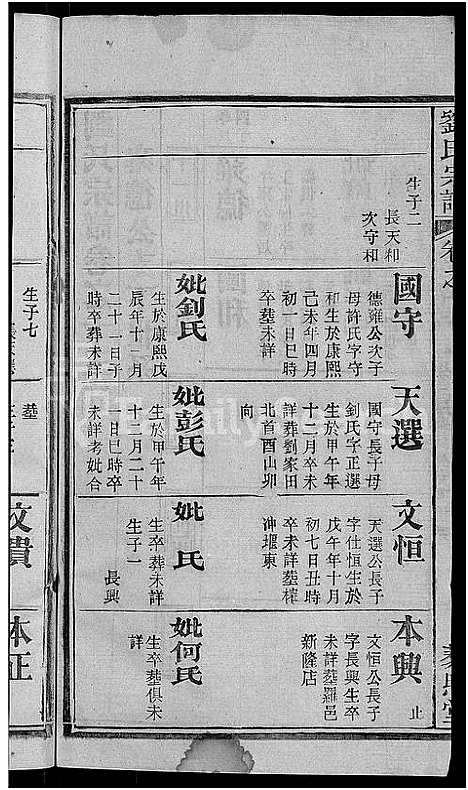 劉氏宗譜
卷之
國守
德雍公次子
母許氏字守
和生於康熙
己未年四月
初一日巳時
卒葬未詳
妣劉氏
生於康熙戊
辰年十一月
二十一日子
時卒葬未詳
生子二
長天和
次守和
天選
國守長子母
劉氏字正選
生於甲午年
十二月卒未
詳葬劉家田
北首酉山卯
向
妣彭氏
生於甲午年
十二月二十
一日巳時卒
未詳考妣合
墓
文恒
天選公長子
字仕恒生於
戊午年十月
初七日丑時
卒未詳葬樟
沖堰東
妣 氏
生卒葬未詳
生子一
長興
本興
止
文恒公長子
字長興生卒
未詳葬羅邑
新隆店
妣何氏
生卒葬俱未
詳
生子七
文貴
本正